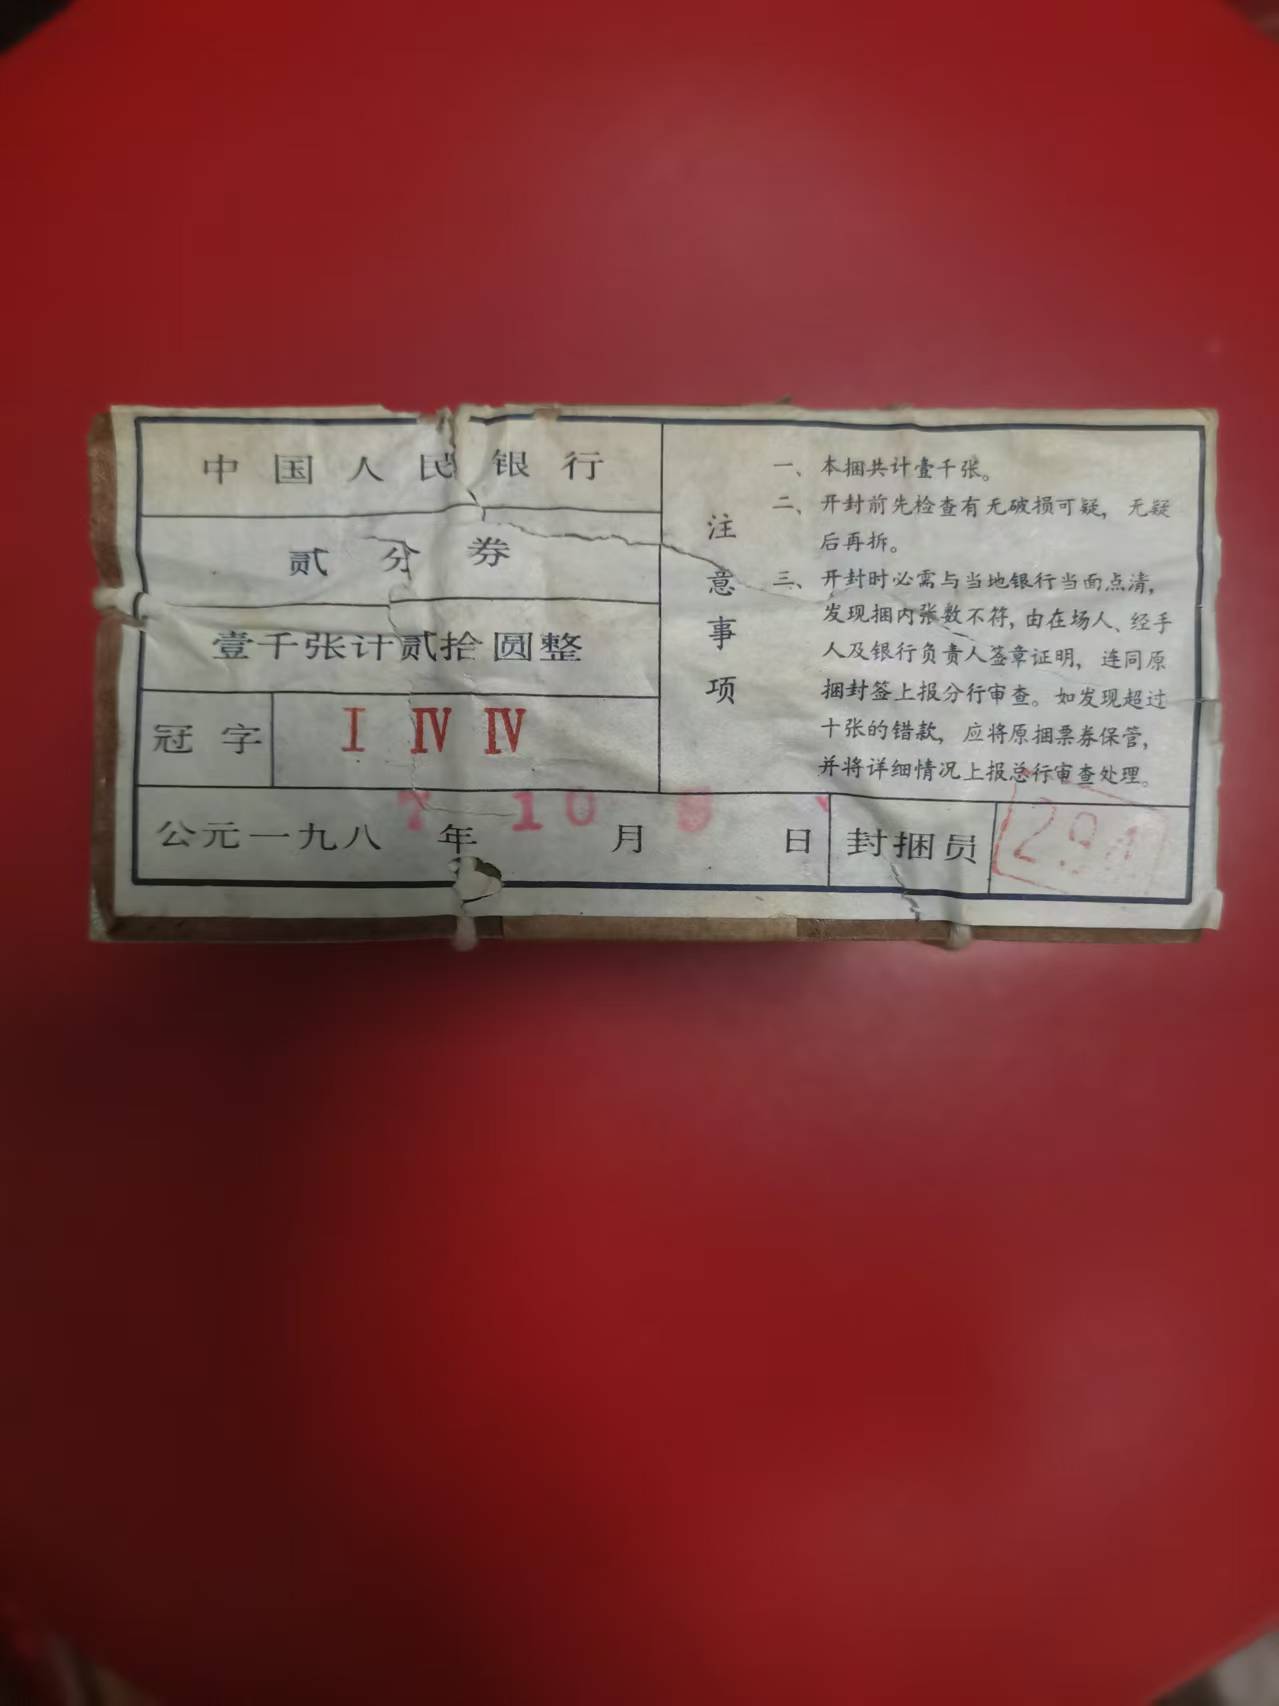 中国人民银行
贰分券
壹千张计贰拾圆整
冠字 I IV IV
公元一九八7年10月 日
封捆员
注意事项
一、本捆共计壹千张。
二、开封前先检查有无破损可疑，无疑
后再拆。
三、开封时必需与当地银行当面点清，
发现捆内张数不符，由在场人、经手
人及银行负责人签章证明，连同原
捆封签上报分行审查。如发现超过
十张的错款，应将原捆票券保管，
并将详细情况上报总行审查处理。